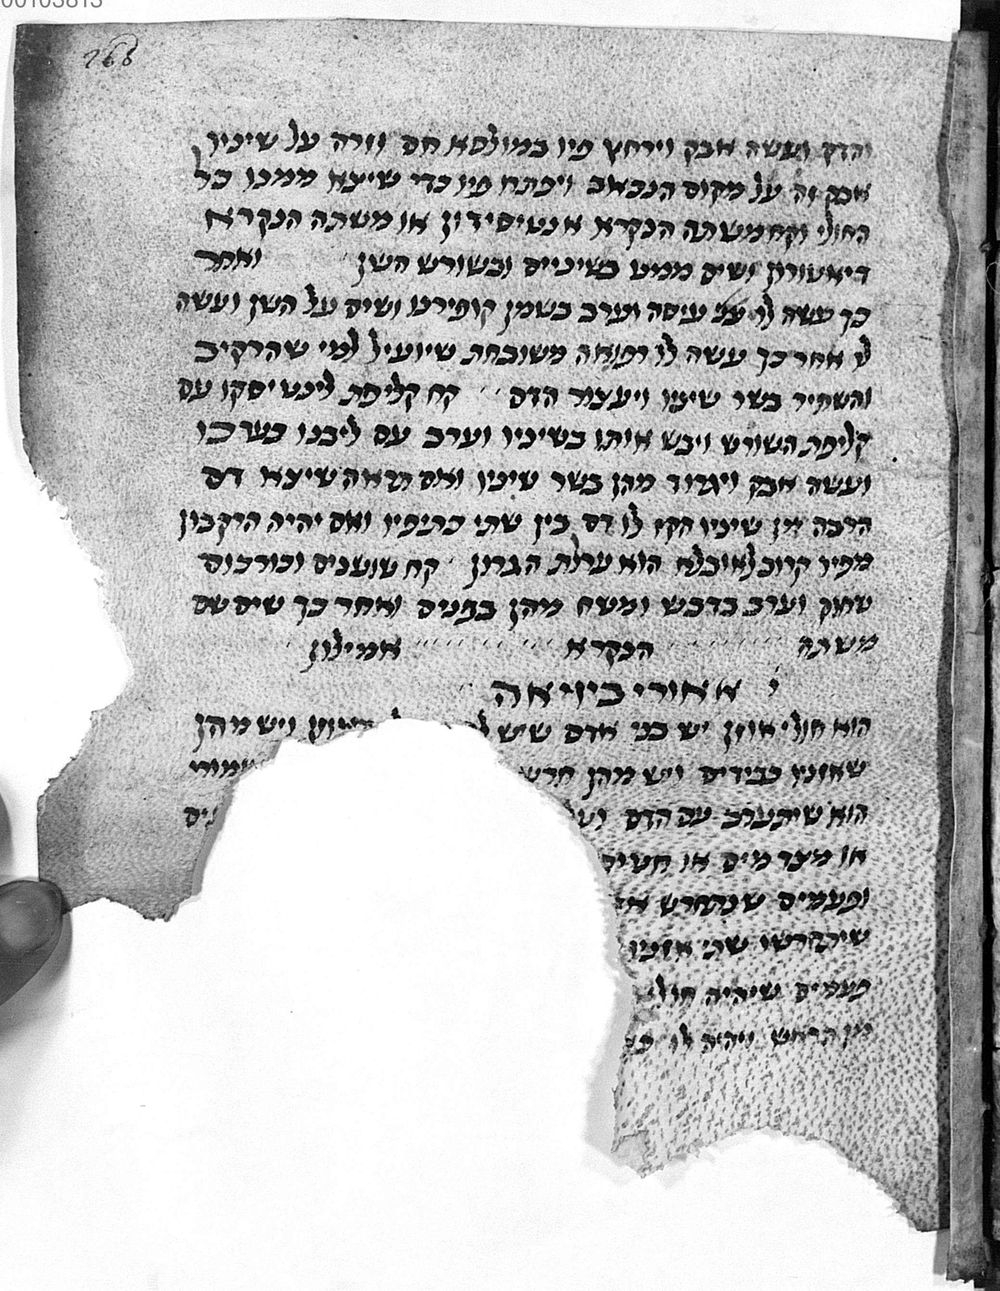 00103813
268
והדק ועשה אבק וירחץ פיו במולסא חם וזרה על שיניו
אבק זה על מקום הנכאב ויפתח פיו כדי שיצא ממנו כל
החולי וקח משתה הנקרא אנטיסידון או משתה הנקרא
דיאטורון ושים ממנו בשינייס ובשורש השן ואחר
כך עשה לו עיסה וערב בשמן קופירטו ושים על השן ועשה
לו אחר כך עשה לו רפואה משובחת שיועיל למי שהרקיב
והשתיר בשר שיניו ויעצור הדם קח קליפת ליבטיסקו עם
קליפת השורש ויבש אותו בשיניו וערב עם ליבנו בערכו
ועשה אבק ויגרוד מהן בשר שיניו ואם תראה שיצא דם
הרבה מן שיניו הקז לו דם בין שתי כתיפיו ואם יהיה הרקבון
מפיו קרוב לאובלא הוא ערלת הגרון קח שושנים וכורכום
שחוק וערב בדבש ומשח מהן בפנים ואחר כך שים שם
משתה הנקרא אמילון
אאורי ביויאה
הוא חולי אוזן יש בני אדם שיש ויש מהן
שאזניו כבידים ויש מהן חרש
הוא שיתערב עם הדם
או מצד מים או
ופעמים שנתחרש
שיתחרשו שתי אזניו
פעמים שיהיה חולי
מן הראש ויהיה לו